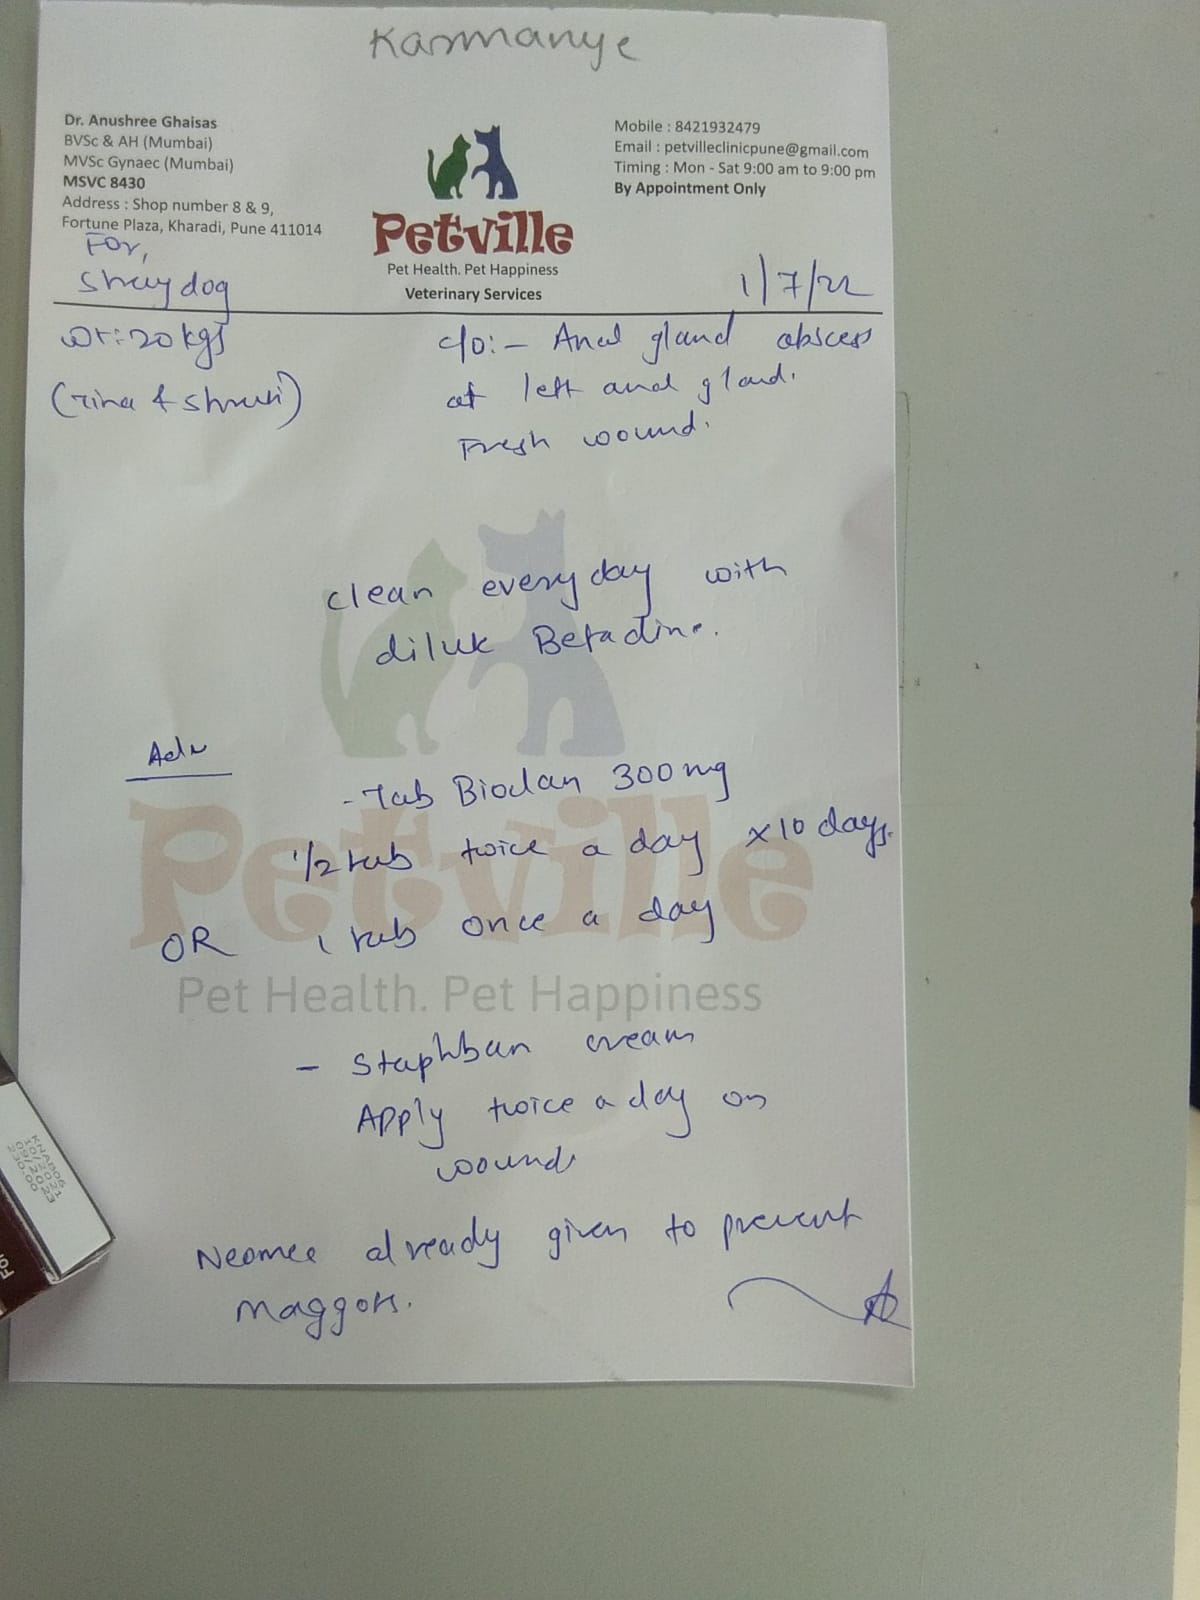 Karmanye
Dr. Anushree Ghaisas
BVSc & AH (Mumbai)
MVSc Gynaec (Mumbai)
MSVC 8430
Address : Shop number 8 & 9,
Fortune Plaza, Kharadi, Pune 411014
Petville
Pet Health. Pet Happiness
Veterinary Services
Mobile : 8421932479
Email : petvilleclinicpune@gmail.com
Timing : Mon - Sat 9:00 am to 9:00 pm
By Appointment Only
For,
Stray dog
1/7/22
wt:-20kgs
c/o:- Anal gland abscess
at left anal gland.
Fresh wound.
clean everyday with
dilute Betadine.
Adv
- Tab Bioclan 300 mg
1/2 tab twice a day x10 days.
OR 1 tab once a day
Petville
Pet Health. Pet Happiness
- Staphban cream
Apply twice a day on
wound
Neomec already given to prevent
maggots.
KNAB06
10/2021
09/2023
230.00
For